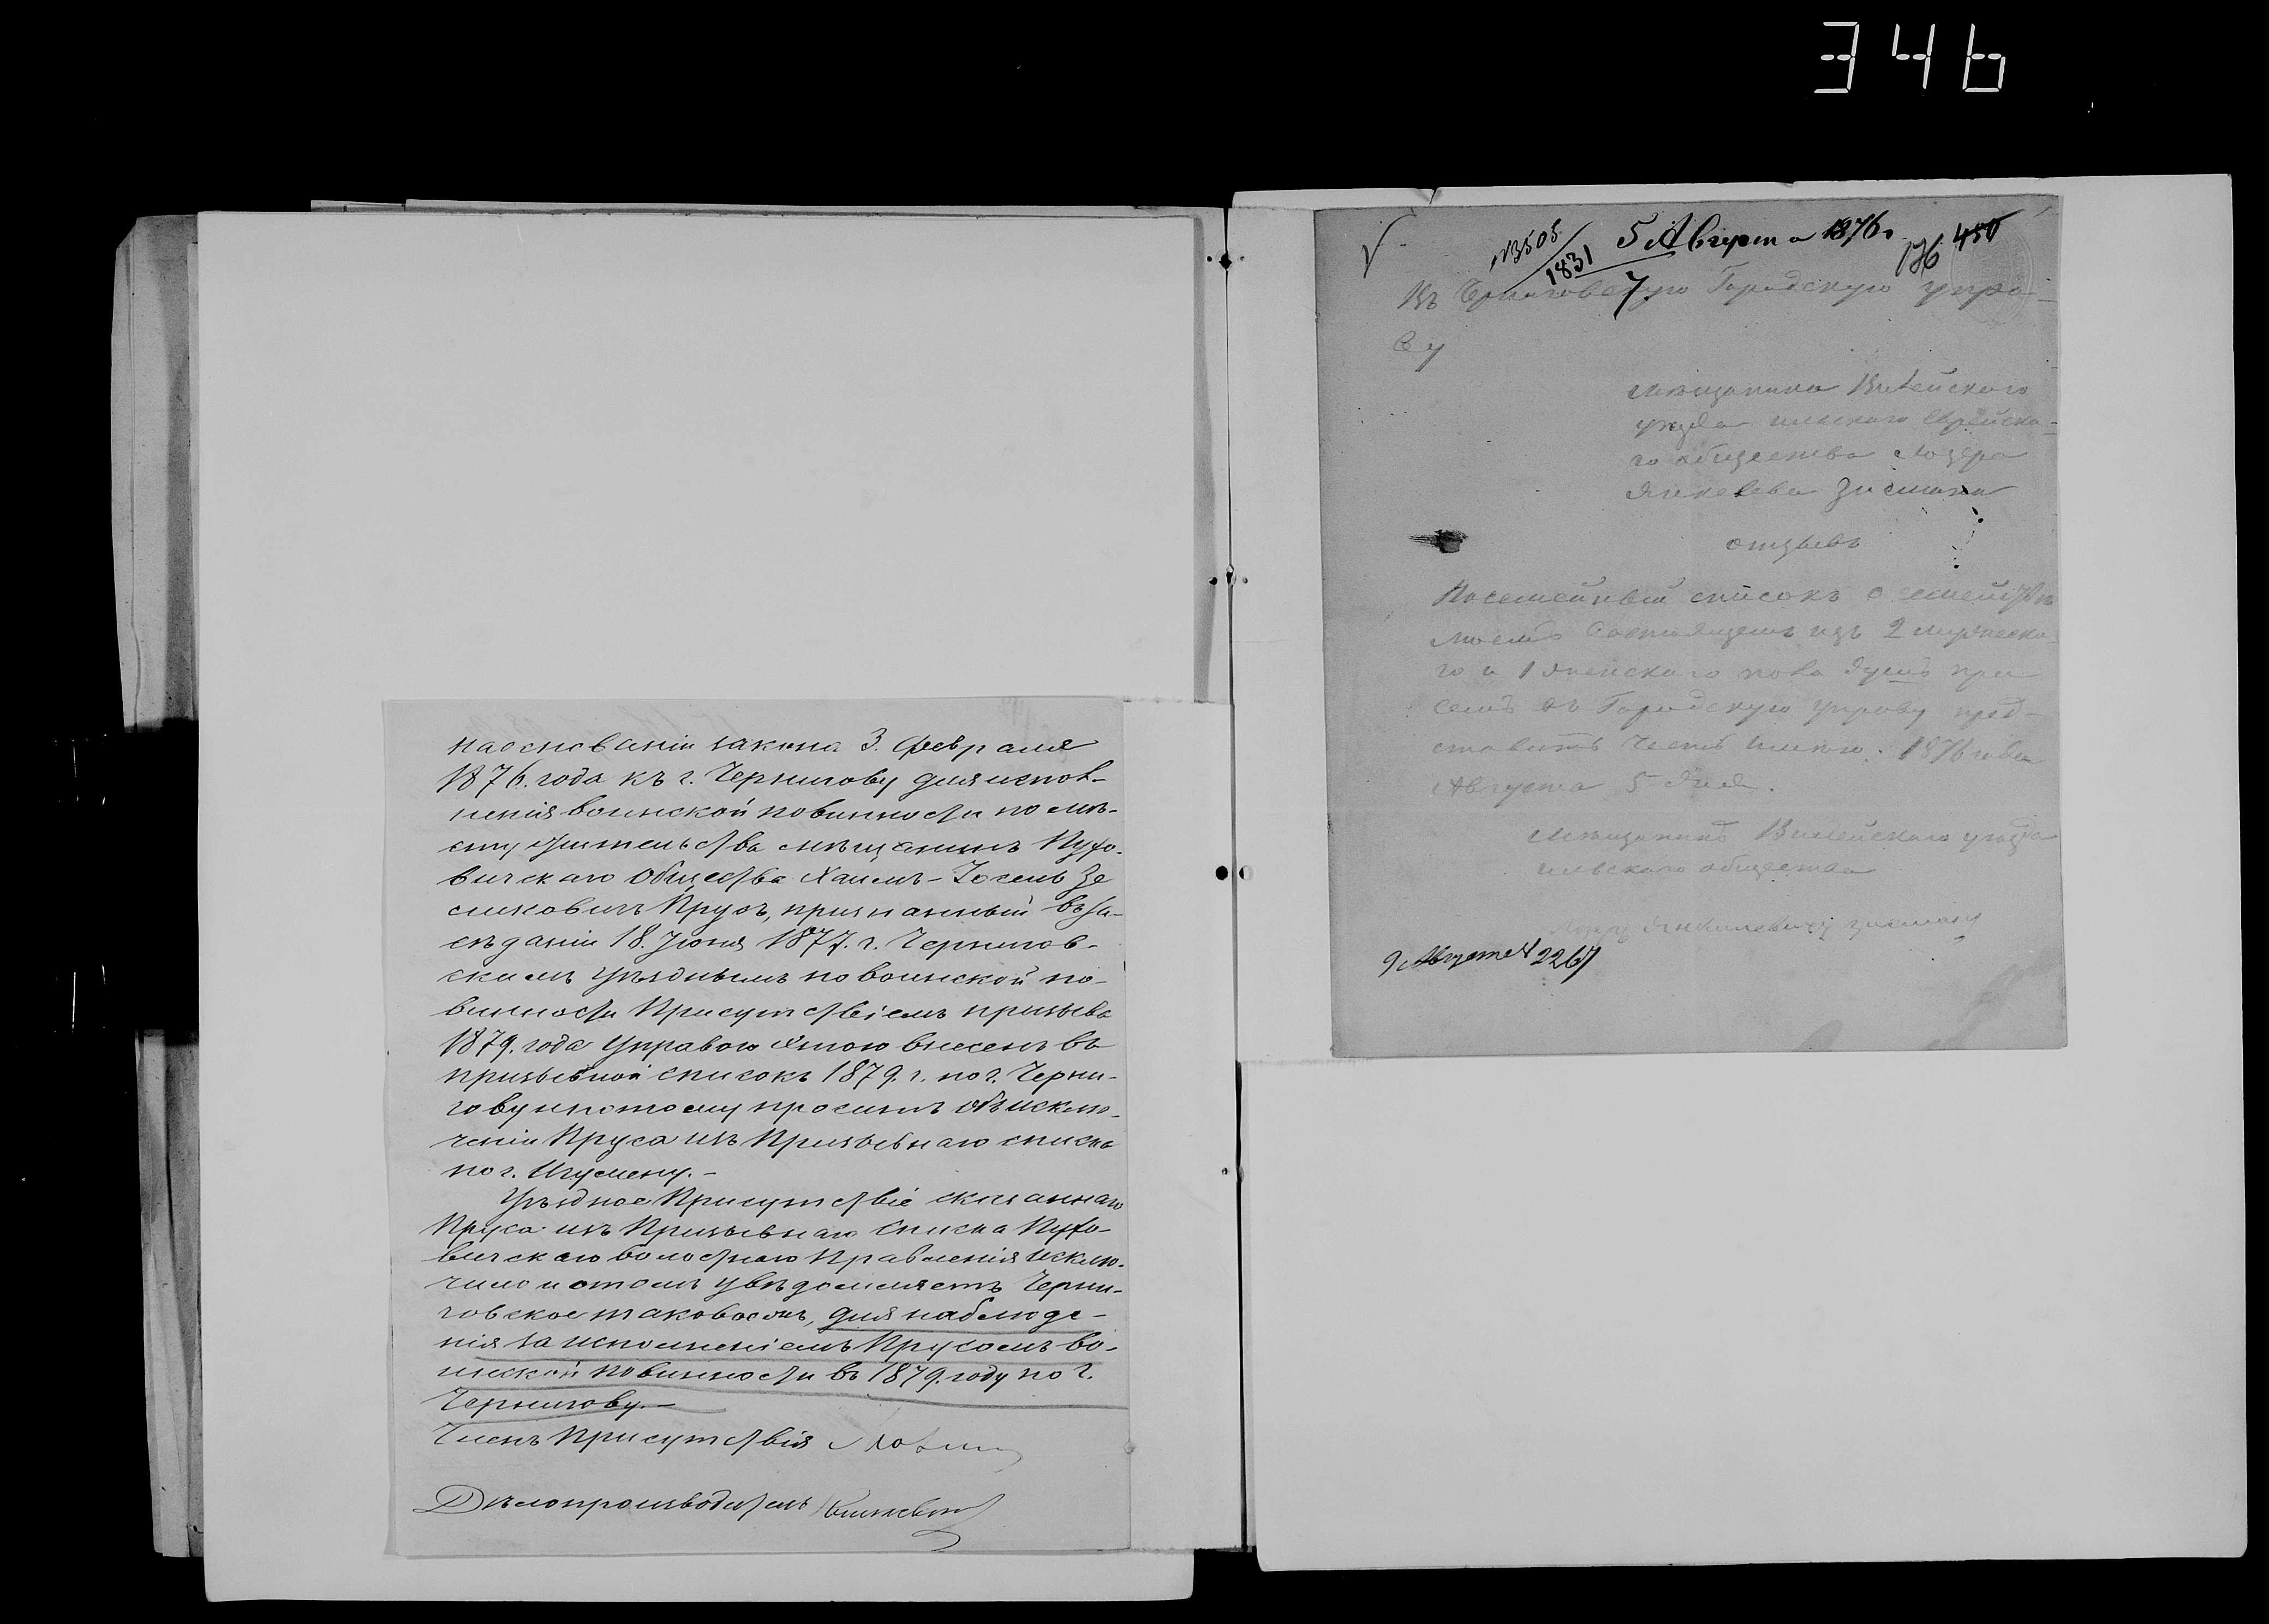 346
на основаніи закона 3. февраля
1876. года къ г. Чернигову для испол-
ненія воинской повинности по мѣ-
сту жительства мѣщанинъ Пухо-
вичскаго Общества Хаимъ-Іосель Зе
ликовичъ Прусъ, признанный въ за-
сѣданіи 18. Іюня 1877. г. Чернигов-
скимъ Уѣзднымъ по воинской по-
винности Присутствіемъ призыва
1879. года Управою этою внесенъ въ
призывной списокъ 1879. г. по г. Черни-
гову и потому проситъ объ исклю-
ченіи Пруса изъ Призывнаго списка
по г. Игумену.-
Уѣздное Присутствіе сказаннаго
Пруса изъ Призывнаго Списка Пухо-
вичскаго волостнаго Правленія исклю-
чило и о томъ увѣдомляетъ Черни-
говское таковое, для наблюде-
нія за исполненіемъ Прусомъ во-
инской повинности въ 1879. году по г.
Чернигову.-
Членъ Присутствія
Дѣлопроизводитель
№3505 5 Августа 1876 г. 450
1831
7
Въ Черниговскую Городскую упра-
ву
мѣщанина Вилейского
уѣзда ильского Еврейска-
го общества Лозера
Янкелева Зисмана
отзывъ
Посемейный списокъ о семействѣ
моемъ состоящемъ изъ 2 мужеска-
го и 1 женскаго пола душъ при
семъ въ Городскую управу пред-
ставить честь имею. 1876 года
Августа 5 дня.
Мѣщанинъ Вилейскаго уѣзда
ильского общества
Янкилевичъ зисманъ
9 Августа № 2267